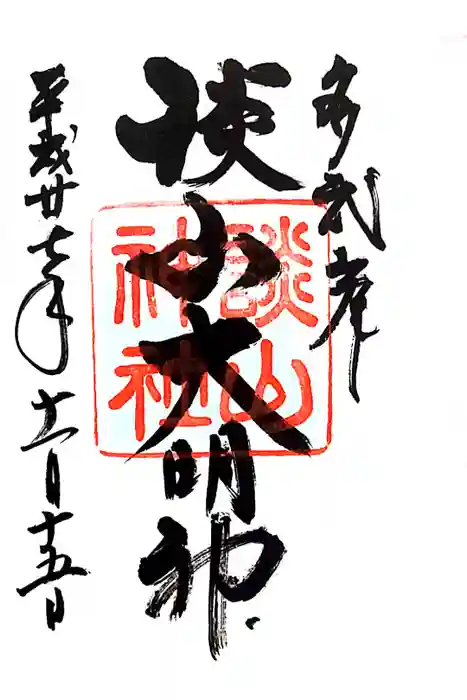 多武峯
談山大明神
談山神社
平成廿七年十一月十五日